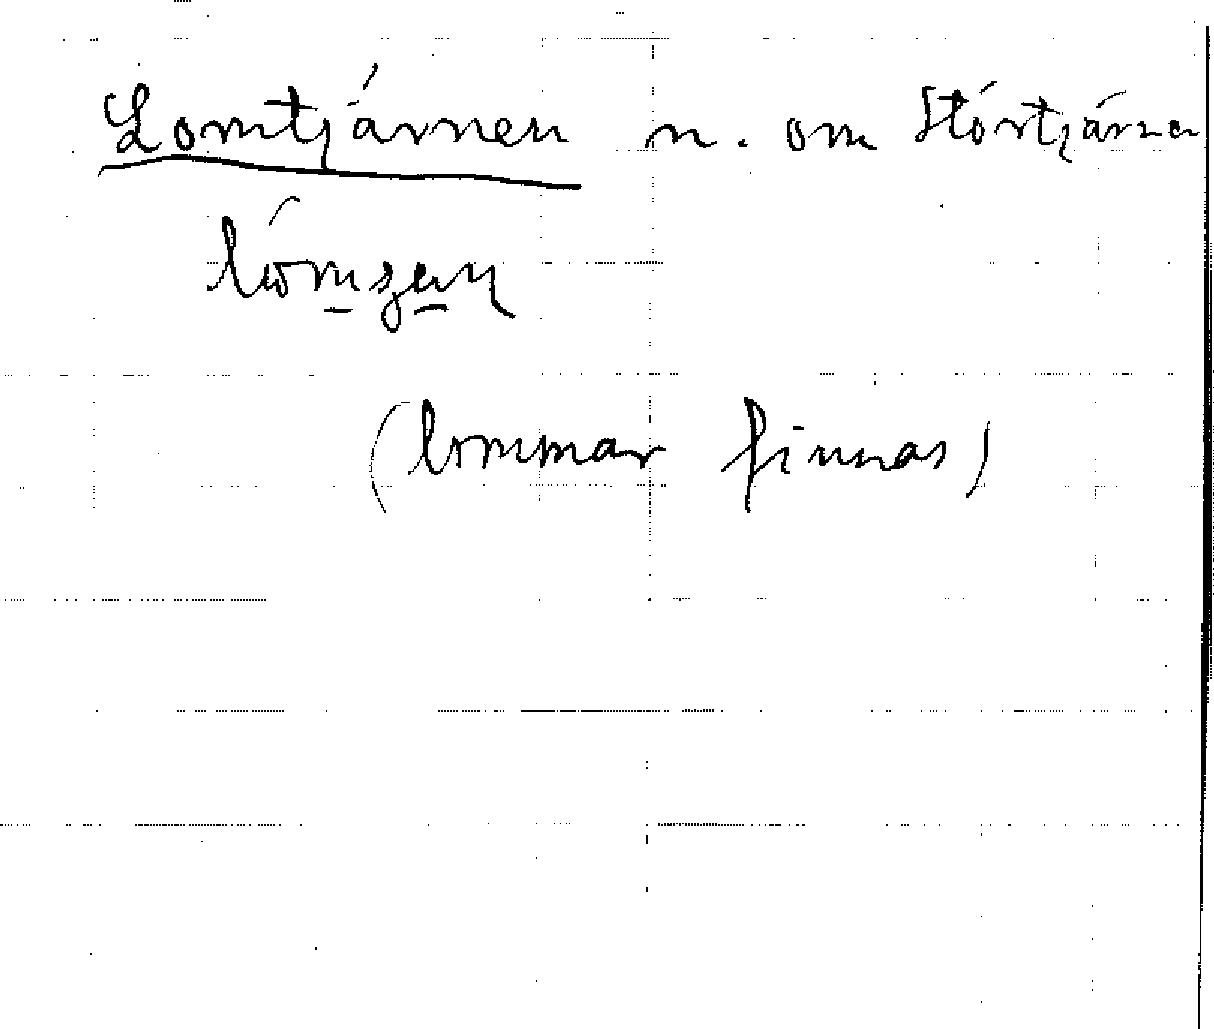 Lomtjärnen n. om Stórtjärnen
(lommar finnas)